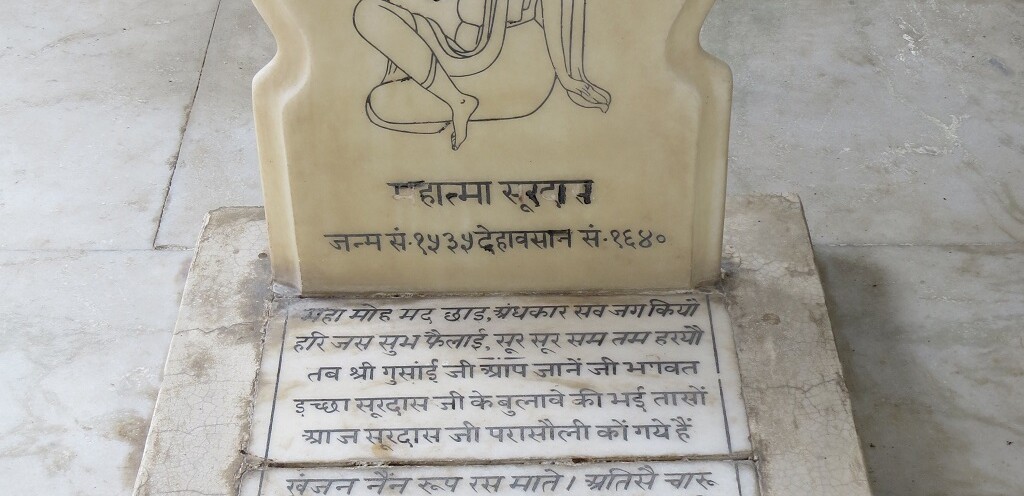 महात्मा सूरदास
जन्म सं॰१५३५ देहावसान सं॰१६४०
महा मोह मद छाड़, अंधकार सब जग कियौ
हरि जस सुभ फैलाई, सूर सूर सम तम हरयौ
तब श्री गुसांई जी आप जानें जी भगवत
इच्छा सूरदास जी के बुलावे की भई तासों
आज सूरदास जी परासौली कों गये हैं
खंजन नैंन रूप रस माते। अतिसै चारू